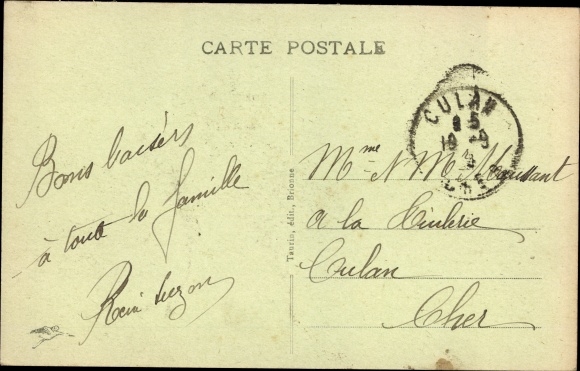 CARTE POSTALE
Bons baisers
à toute la famille
René Suzon
Taurin, édit., Brionne
CULAN
CHER
Mme M
à la Tuilerie
Culan
Cher